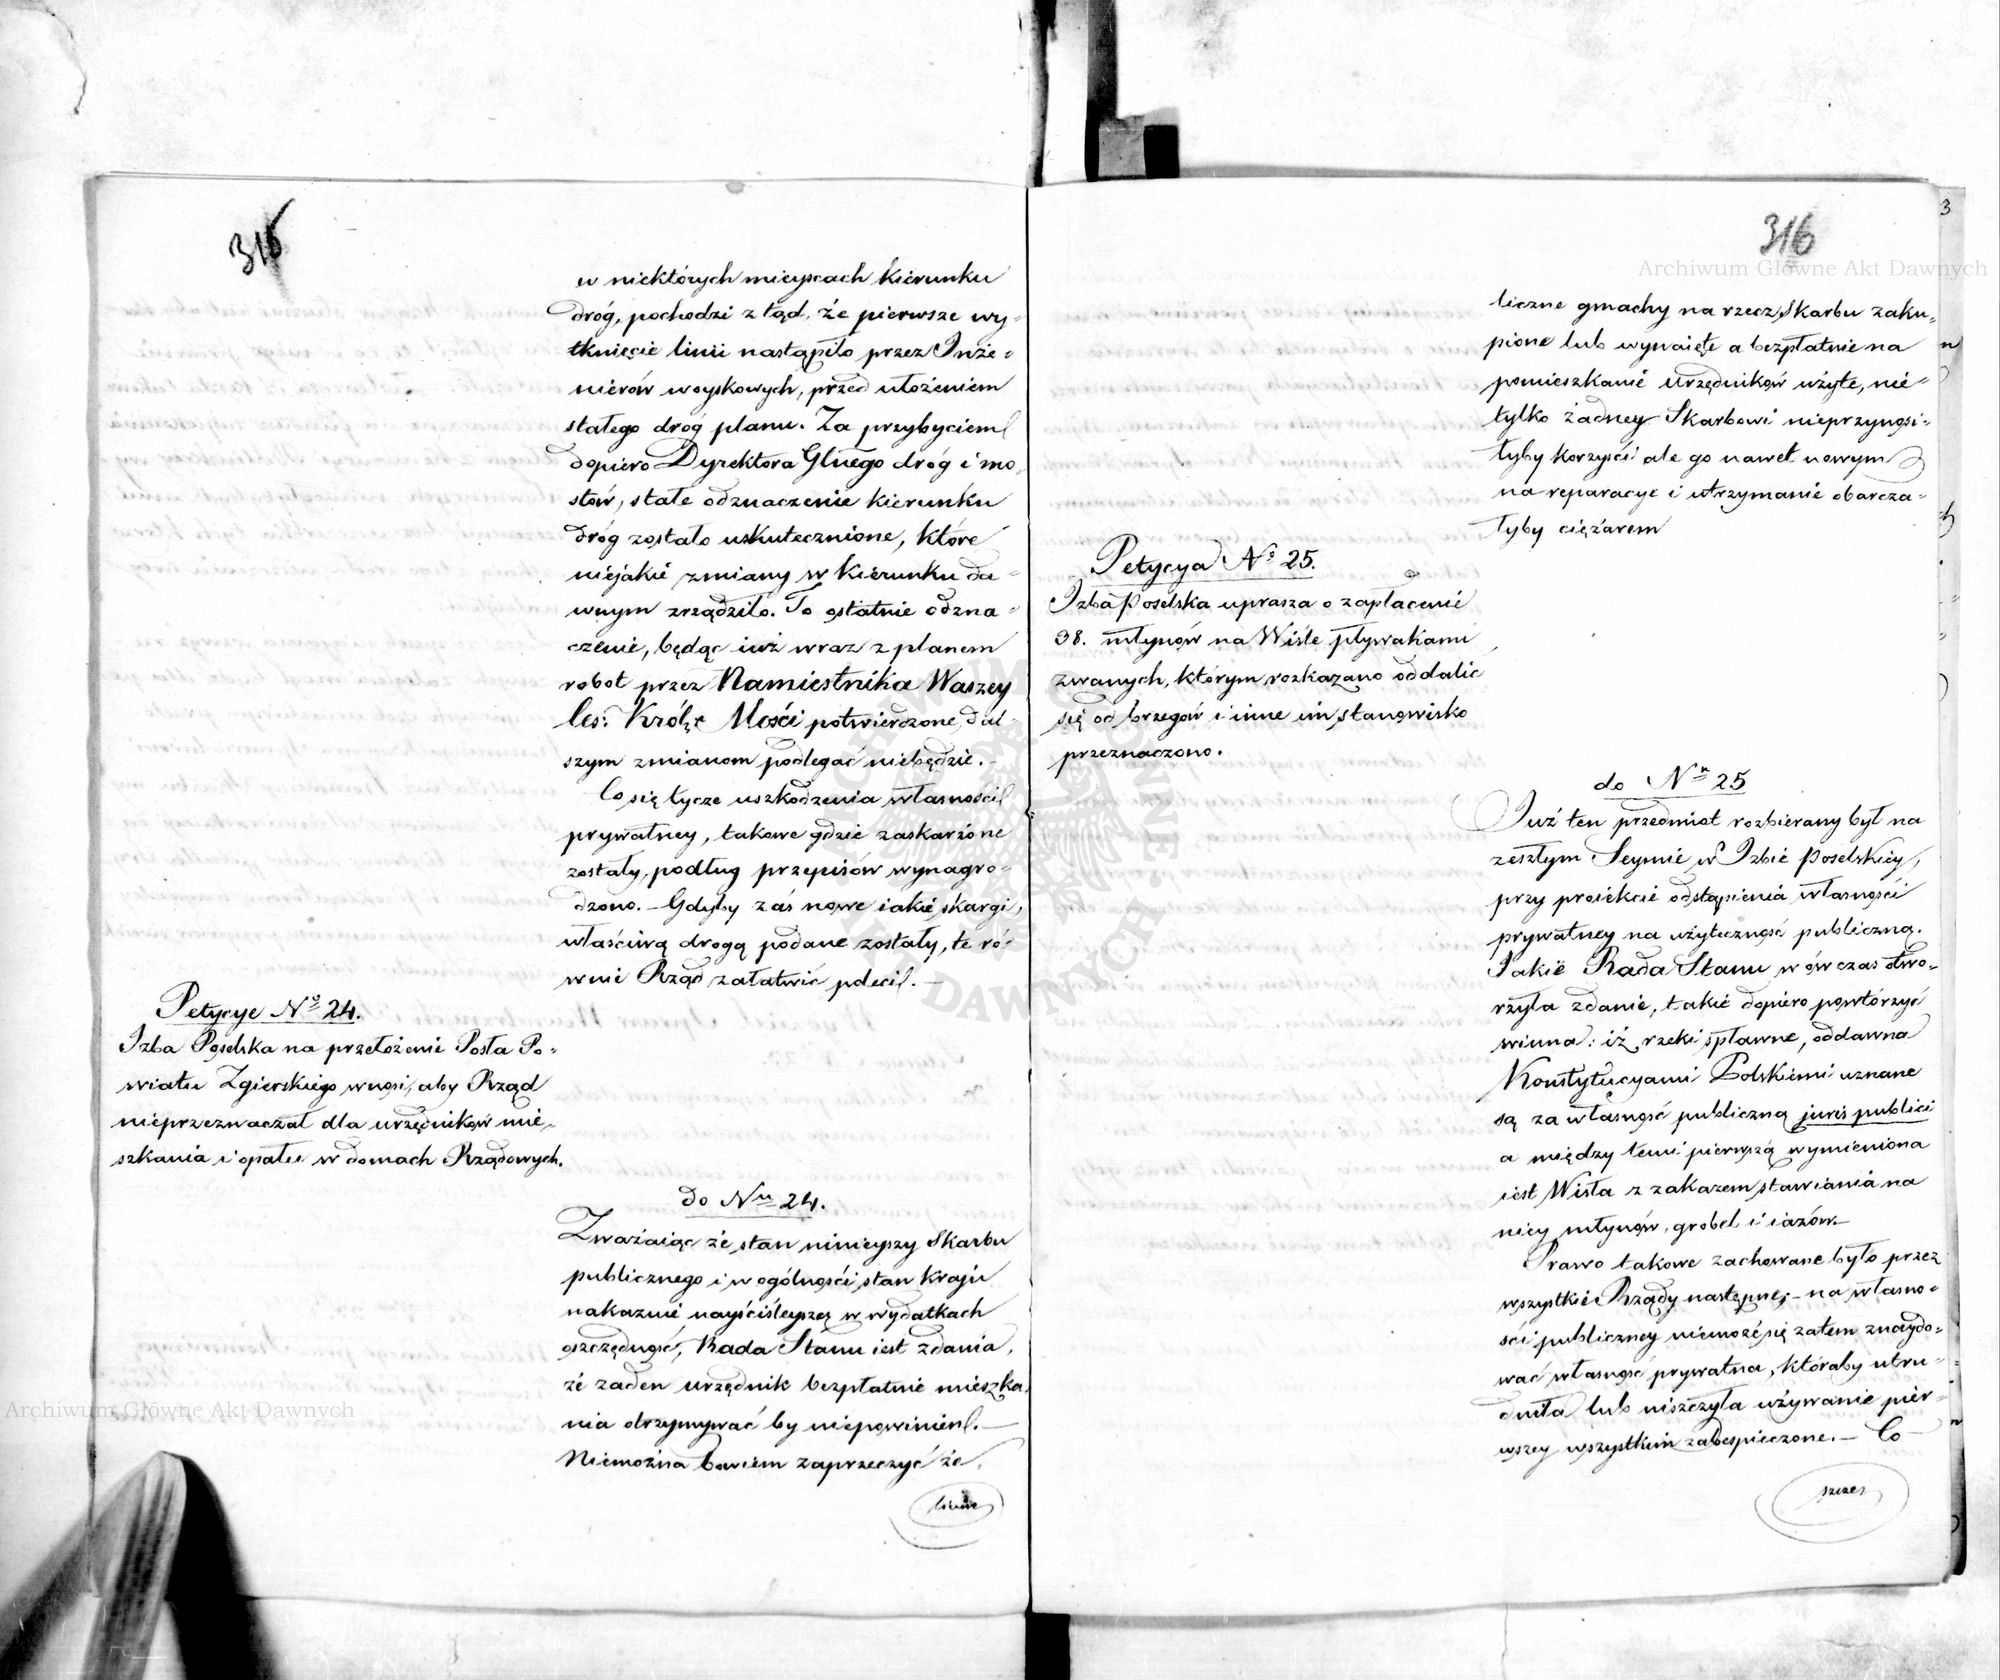 315
w niektórych mieyscach kierunku
dróg, pochodzi z tąd, że pierwsze wy-
tknięcie linii nastąpiło przez Inże-
nierów woyskowych, przed ułożeniem
stałego dróg planu. Za przybyciem
dopiero Dyrektora Głnego dróg i mo-
stów, stałe odznaczenie kierunku
dróg zostało uskutecznione, które
niejakie zmiany w kierunku da-
wnym zrządziło. To ostatnie odzna-
czenie, będąc iuż wraz z planem
robot przez Namiestnika Waszey
Ces: Królę Mości potwierdzone, dal-
szym zmianom podlegać niebędzie.
Co się tycze uszkodzenia własności
prywatney, takowe gdzie zaskarżone
zostały, podług przepisów wynagro-
dzono. – Gdyby zaś nowe iakie skargi,
właściwą drogą podane zostały, te ró-
wnie Rząd załatwić poleci. –
Petycye No 24.
Izba Poselska na przełożenie Posła Po-
wiatu Zgierskiego wnosi, aby Rząd
nieprzeznaczał dla urzędników mie-
szkania i opału w domach Rządowych.
do Nu 24.
Zważaiąc że stan ninieyszy Skarbu
publicznego i w ogólności stan kraju
nakazuie nayściśleyszą w wydatkach
oszczędność, Rada Stanu iest zdania,
że żaden urzędnik bezpłatnie mieszka-
nia otrzymywać by niepowinien. –
Niemożna bowiem zaprzeczyć że
liczne
316
3
liczne gmachy na rzecz Skarbu zaku-
pione lub wynaięte a bezpłatnie na
pomieszkanie urzędników użyte, nie-
tylko żadney Skarbowi nieprzynosi-
łyby korzyści ale go nawet nowym
na reparacye i utrzymanie obarcza-
łyby ciężarem
Petycya No 25.
Izba Poselska uprasza o zapłacenie
98. młynów na Wiśle pływakami
zwanych, którym rozkazano oddalić
się od brzegów i inne im stanowisko
przeznaczono.
do Nu 25
Już ten przedmiot rozbierany był na
zeszłym Seymie w Izbie Poselskiéy,
przy proiekcie odstąpienia własności
prywatney na użyteczność publiczną.
Jakie Rada Stanu w ów czas otwo-
rzyła zdanie, takie dopiero powtórzyć
winna: iż rzeki spławne, oddawna
Konstytucyami Polskiemi uznane
są za własność publiczną juris publici
a między temi pierwszą wymieniona
iest Wisła z zakazem stawiania na
niey młynów, grobel i iazów. –
Prawo takowe zachowane było przez
wszystkie Rządy następne; – na własno-
ści publiczney niemoże się zatem znaydo-
wać własność prywatna, któraby utru-
dniła lub niszczyła używanie pier-
wszey wszystkim zabespieczone. – Co
szczez
Archiwum Główne Akt Dawnych
Archiwum Główne Akt Dawnych
ARCHIWUM GŁÓWNE AKT DAWNYCH